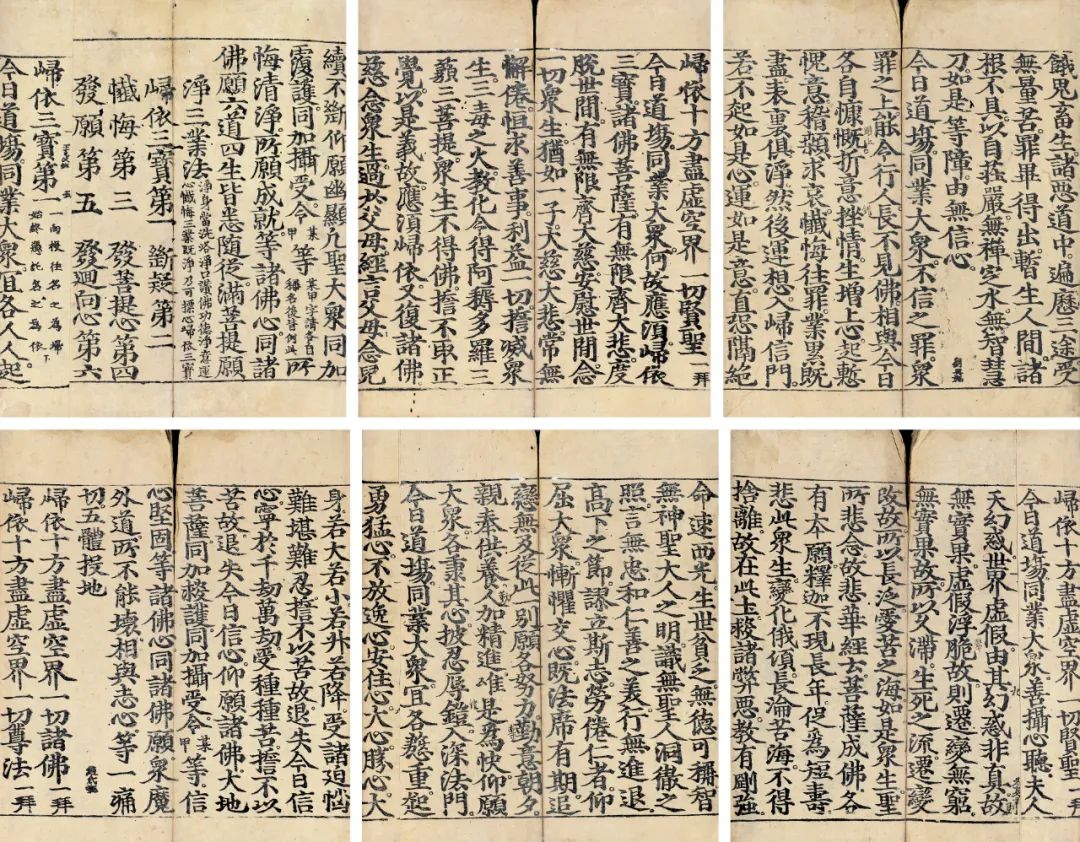 續不斷仰願幽顯凡聖大衆同加
覆護同加攝受令某甲等某甲字講各自稱名後皆例此所
悔清淨所願成就等諸佛心同諸
佛願六道四生皆悉隨從滿菩提願
淨三業法淨身當洗浴淨口讚佛功德淨意運心懺悔三業既淨乃可操心歸依三寶
歸依三寶第一 斷疑第二
懺悔第三 發菩提心第四
發願第五 發迴向心第六
歸依三寶第一一向投往名之為歸始終憑託名之為依
今日道場同業大衆宜各人人起
歸依十方盡虛空界一切賢聖一拜
今日道場同業大衆何故應須歸依
三寶諸佛菩薩有無限齊大悲度
脫世間有無限齊大慈安慰世間念
一切衆生猶如一子大慈大悲常無
懈倦恒求善事利益一切誓滅衆
生三毒之火教化令得阿耨多羅三
藐三菩提衆生不得佛誓不取正
覺以是義故應須歸依又復諸佛
慈念衆生過於父母經言父母念兒
餓鬼畜生諸惡道中遍歷三途受
無量苦罪畢得出暫生人間諸
根不具以自莊嚴無禪定水無智慧
刀如是等障由無信心
今日道場同業大衆不信之罪衆
罪之上能令行人長不見佛相與今日
各自慷慨折意挫情生增上心起慙
愧意稽顙求哀懺悔往罪業累既
盡表裏俱淨然後運想入歸信門
若不起如是心運如是意直恐隔絕
身若大若小若升若降受諸迫惱
難堪難忍誓不以苦故退失今日信
心寧於千劫萬劫受種種苦誓不以
苦故退失今日信心仰願諸佛大地
菩薩同加救護同加攝受令某甲等信
心堅固等諸佛心同諸佛願衆魔
外道所不能壞相與志心等一痛
切五體投地
歸依十方盡虛空界一切諸佛一拜
歸依十方盡虛空界一切尊法一拜
命速西光生世貧乏無德可稱智
無神聖大人之明識無聖人洞徹之
照言無忠和仁善之美行無進退
高下之節謬立斯志勞倦仁者仰
屈大衆慚懼交心既法席有期追
戀無及從此一別願各努力勤意朝夕
親奉供養人加精進唯是為快仰願
大衆各秉其心披忍辱鎧入深法門
今日道場同業大衆宜各慇重起
勇猛心不放逸心安住心大心勝心大
歸依十方盡虛空界一切賢聖一拜
今日道場同業大衆善攝心聽夫人
天幻惑世界虛假由其幻惑非真故
無實果虛假浮脆故則遷變無窮
無實果故所以久滯生死之流遷變
改故所以長泛愛苦之海如是衆生聖
所悲念故悲華經云菩薩成佛各
有本願釋迦不現長年促為短壽
悲此衆生變化俄頃長淪苦海不得
捨離故在此土救諸弊惡教有剛強